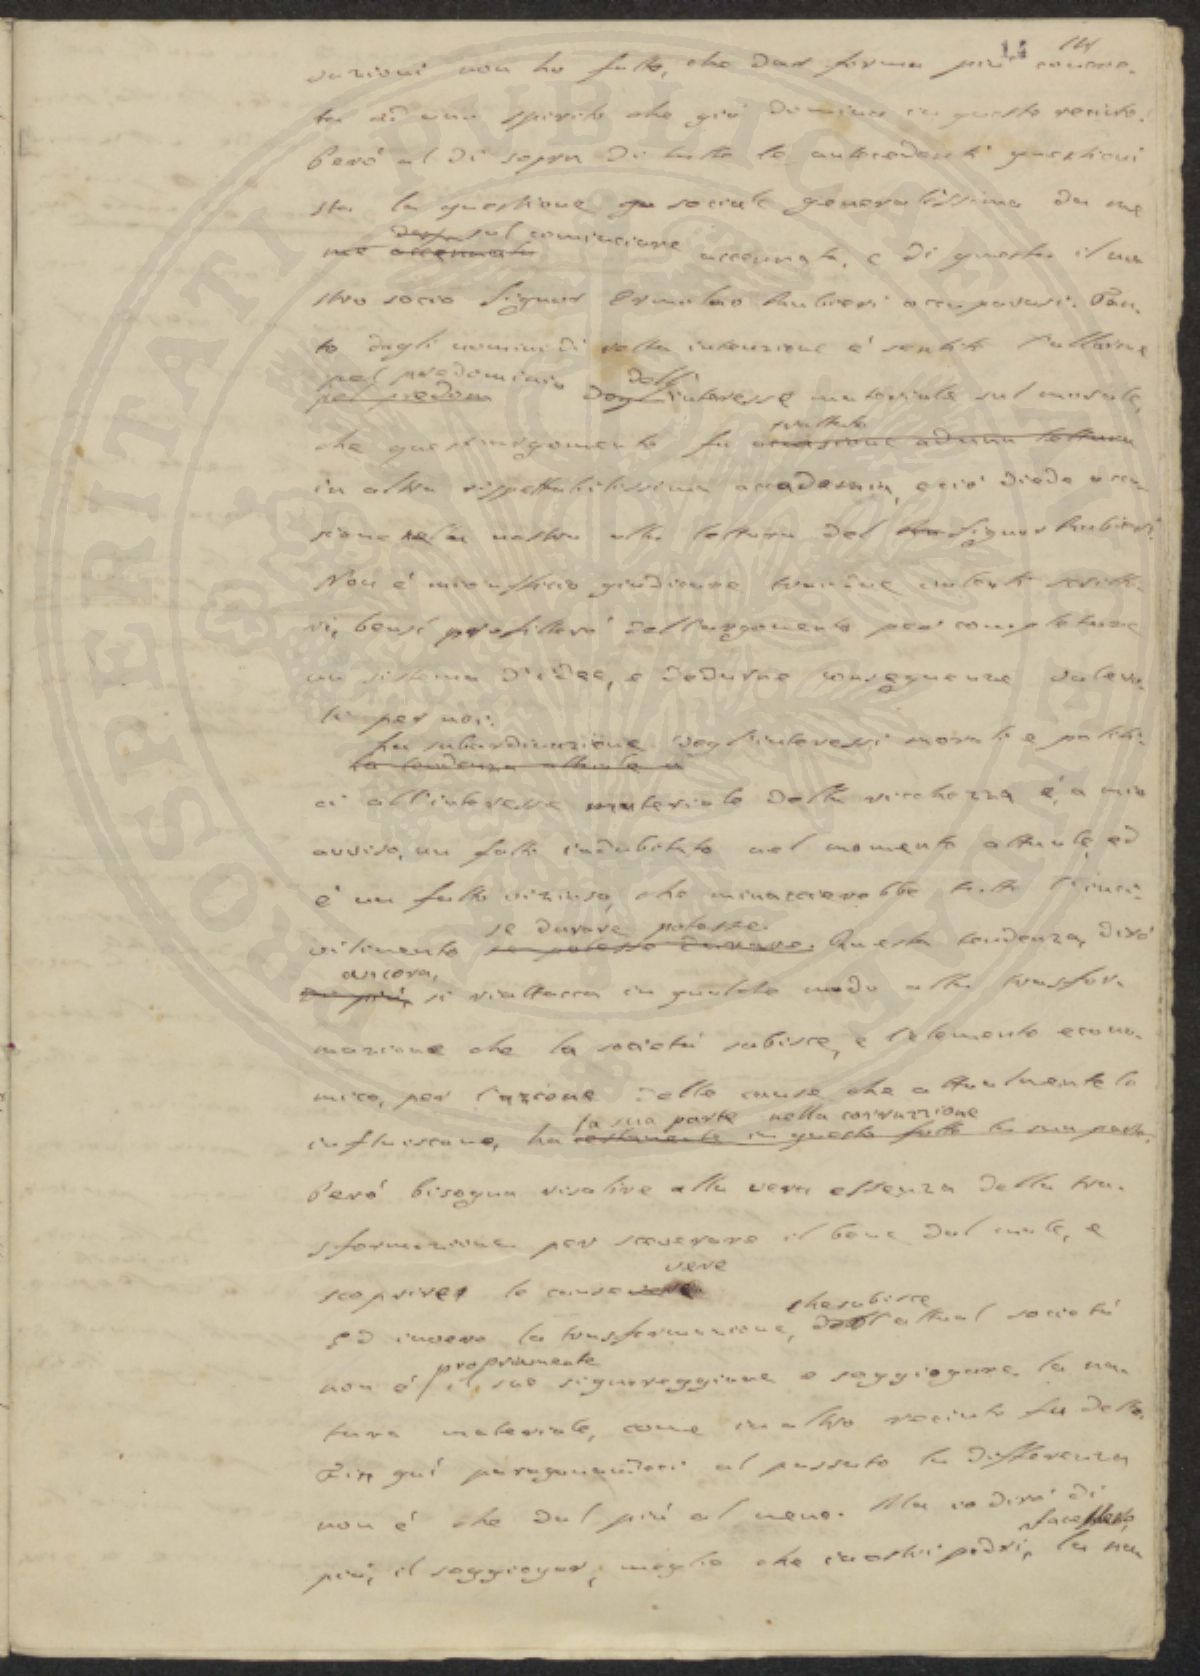 14 14
vazioni non ho fatto, che dar forma più concre-
ta ad uno spirito che già domina in questo recinto.
Però al di sopra di tutte le antecedenti questioni
sta la questione sociale generalissima da me
sul cominciare
me accennata accennata, e di questa il no
stro socio Signor Ermolao Rubieri occupavasi. Tan-
to dagli uomini di retta intenzione è sentito l'allarme
pel predominio dell'
pel predom degl'interesse materiale sul morale,
trattato
che quest'argomento fu occasione ad una lettura
in altra rispettabilissima accademia, e ciò diede occa-
sione nella nostra alla lettura del Signor Rubieri.
Non è mio ufficio giudicare valenti scritto-
ri, bensì profitterò dell'argomento per completare
un sistema d'idee, e dedurne conseguenze valevo-
li per noi.
La subordinazione degl'interessi morali e politi-
la tendenza attuale
ci all'interesse materiale della ricchezza è, a mio
avviso, un fatto indubitato nel momento attuale, ed
è un fatto vizioso, che minaccierebbe tutto l'inci-
se durare potesse.
vilimento se potesse durare. Questa tendenza, dirò
ancora,
di più, si riattacca in qualche modo alla trasfor-
mazione che la società subisce, e l'elemento econo-
mico, per l'azione delle cause che attualmente lo
la sua parte nella corruzione
influiscono, ha certamente in questo fatto la sua parte.
Però bisogna risalire alla vera essenza della tra-
sformazione per sceverare il bene dal male, e
vere
scoprire le cause vere
che subisce
Ed invero la trasformazione, dell'attual società
propriamente
non è il suo signoreggiare e soggiogare la na-
tura materiale, come in altro recinto fu detto.
Fin quì paragonandoci al passato la differenza
non è che dal più al meno. Ma io dirò di
facessero,
più, il soggiogar, meglio che i nostri padri, la na